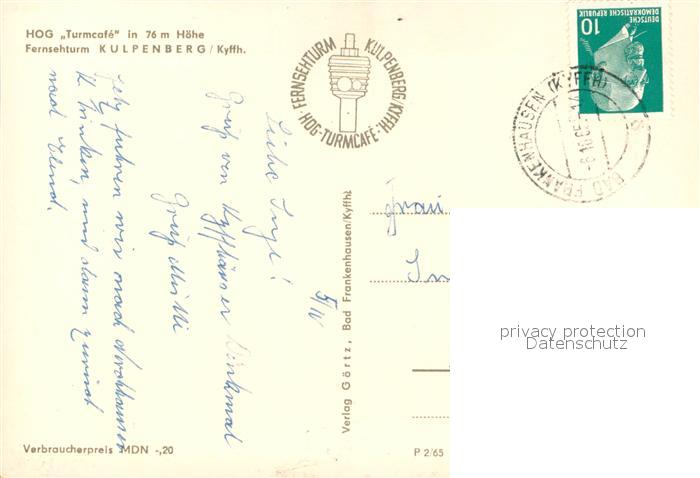 HOG „Turmcafé" in 76 m Höhe
Fernsehturm KULPENBERG / Kyffh.
FERNSEHTURM KULPENBERG/KYFFH.
·HOG-TURMCAFÉ·
DEUTSCHE
DEMOKRATISCHE REPUBLIK
10
BAD FRANKENHAUSEN (KYFFH)
Liebe Inge!
Gruß von Kyffhäuser Denkmal
Gruß Mutti
Jetzt fahren wir nach Nordhausen
trinken, und dann zurück
nach
Frau
Verlag Görtz, Bad Frankenhausen/Kyffh.
privacy protection
Datenschutz
Verbraucherpreis MDN -,20
P 2/65